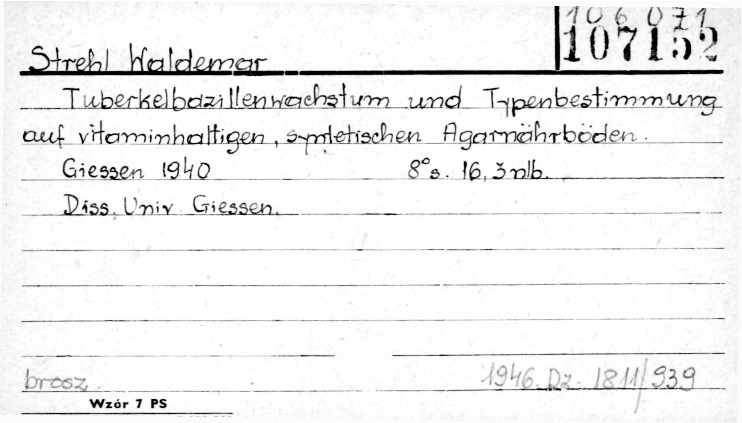 106 071
107152
Strehl Waldemar
Tuberkelbazillenwachstum und Typenbestimmung
auf vitaminhaltigen, syntetischen Agarnährböden.
Giessen 1940 8°s. 16, 3 nlb.
Diss. Univ. Giessen.
brosz. 1946. Dz. 1811/939
Wzór 7 PS